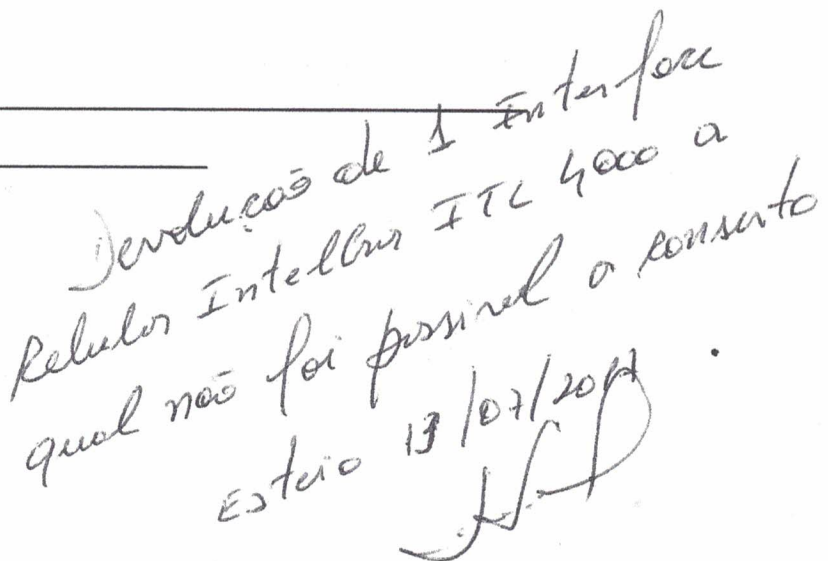 Devolução de 1 Interface
Celular Intelbras ITC 4000 a
qual não foi possivel o conserto
Esteio 13/07/2017